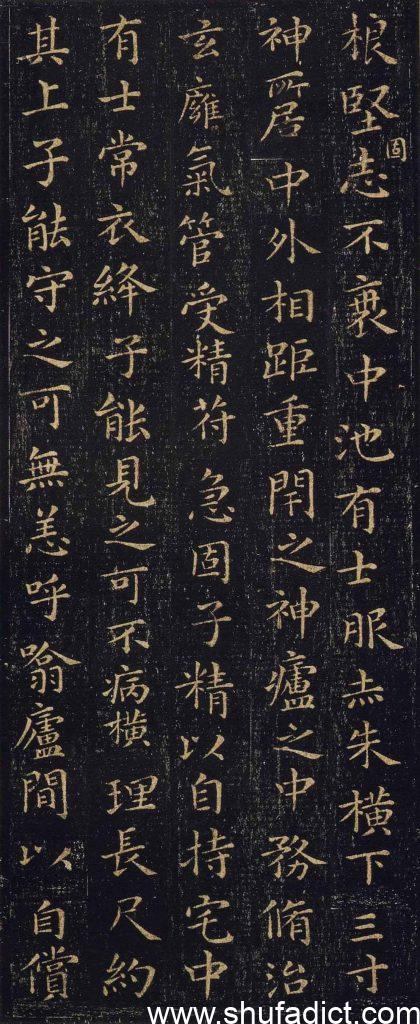 根堅固志不衰中池有士服赤朱橫下三寸
神所居中外相距重閇之神廬之中務脩治
玄癰氣管受精苻急固子精以自持宅中
有士常衣絳子能見之可不病橫理長尺約
其上子能守之可無恙呼噏廬間以自償
www.shufadict.com